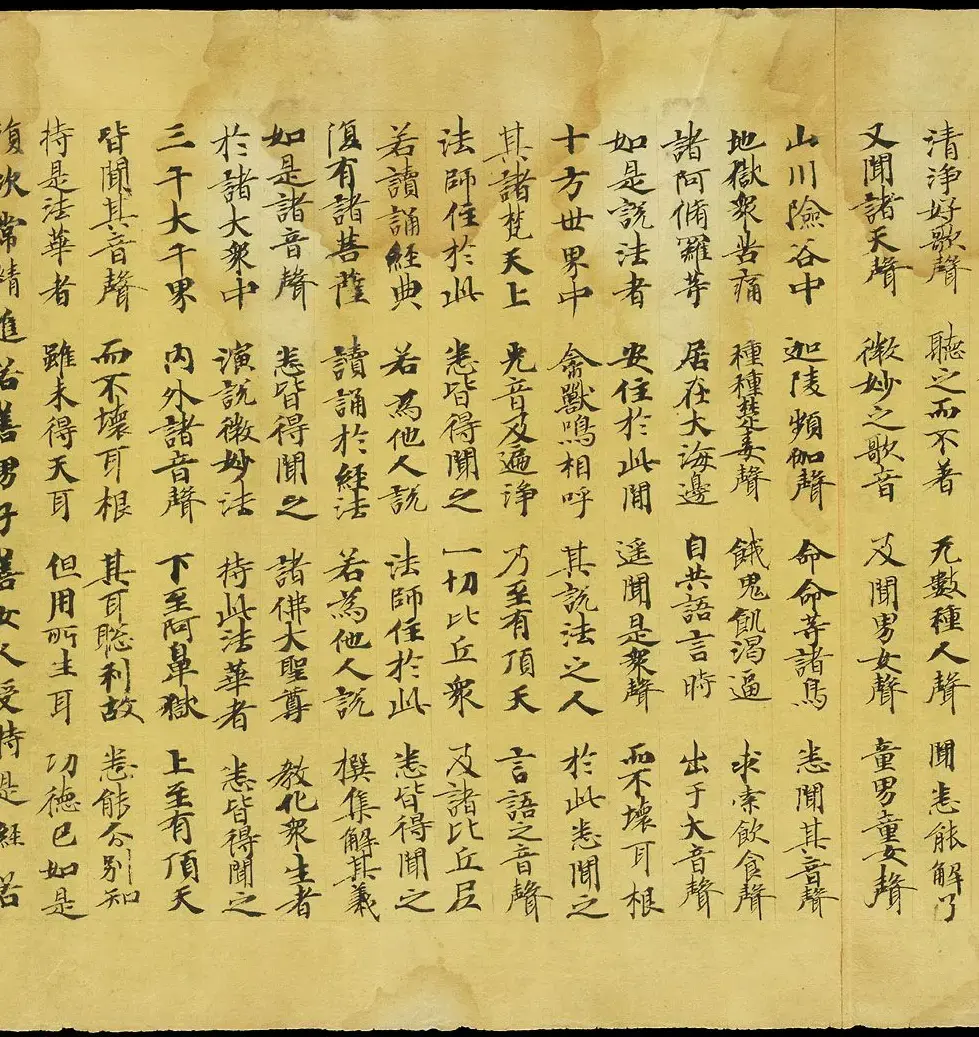 清淨好歌聲 聽之而不著 无數種人聲 聞悉能解了
又聞諸天聲 微妙之歌音 及聞男女聲 童男童女聲
山川險谷中 迦陵頻伽聲 命命等諸鳥 悉聞其音聲
地獄衆苦痛 種種楚毒聲 餓鬼飢渴逼 求索飲食聲
諸阿脩羅等 居在大海邊 自共語言時 出于大音聲
如是說法者 安住於此間 遥聞是衆聲 而不壞耳根
十方世界中 禽獸鳴相呼 其說法之人 於此悉聞之
其諸梵天上 光音及遍淨 乃至有頂天 言語之音聲
法師住於此 悉皆得聞之 一切比丘衆 及諸比丘尼
若讀誦經典 若為他人說 法師住於此 悉皆得聞之
復有諸菩薩 讀誦於經法 若為他人說 撰集解其義
如是諸音聲 悉皆得聞之 諸佛大聖尊 教化衆生者
於諸大衆中 演說微妙法 持此法華者 悉皆得聞之
三千大千界 內外諸音聲 下至阿鼻獄 上至有頂天
皆聞其音聲 而不壞耳根 其耳聡利故 悉能分別知
持是法華者 雖未得天耳 但用所生耳 功德已如是
復次常精進若善男子善女人受持是經若